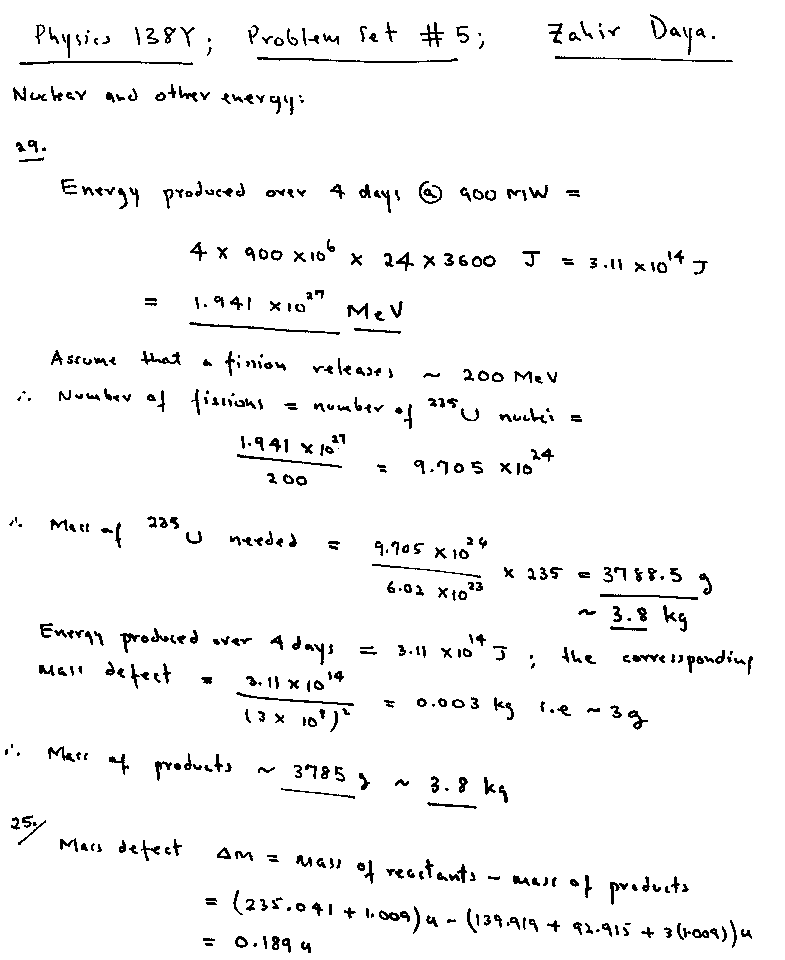 Physics 138Y; Problem Set # 5; Zahir Daya.
Nuclear and other energy:
29.
Energy produced over 4 days @ 900 MW =
4 x 900 x 10^6 x 24 x 3600 J = 3.11 x 10^14 J
= 1.941 x 10^27 MeV
Assume that a fission releases ~ 200 MeV
∴ Number of fissions = number of ^235 U nuclei =
1.941 x 10^27 / 200 = 9.705 x 10^24
∴ Mass of ^235 U needed = 9.705 x 10^24 / 6.02 x 10^23 x 235 = 3788.5 g
~ 3.8 kg
Energy produced over 4 days = 3.11 x 10^14 J ; the corresponding
mass defect = 3.11 x 10^14 / (3 x 10^8)^2 = 0.003 kg i.e ~ 3g
∴ Mass of products ~ 3785 g ~ 3.8 kg
25./
Mass defect ΔM = mass of reactants - mass of products
= (235.041 + 1.009) u - (139.919 + 92.915 + 3(1.009)) u
= 0.189 u